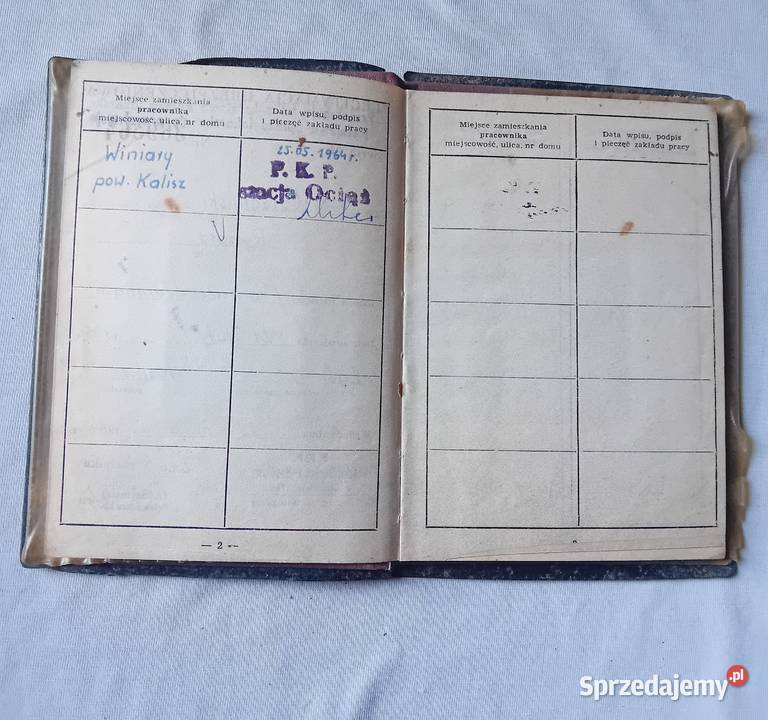 Miejsce zamieszkania
pracownika
miejscowość, ulica, nr domu
Data wpisu, podpis
i pieczęć zakładu pracy
Winiary
pow. Kalisz
25.05.1964 r.
P. K. P.
stacja Ociąż
— 2 —
Miejsce zamieszkania
pracownika
miejscowość, ulica, nr domu
Data wpisu, podpis
i pieczęć zakładu pracy
Sprzedajemy.pl